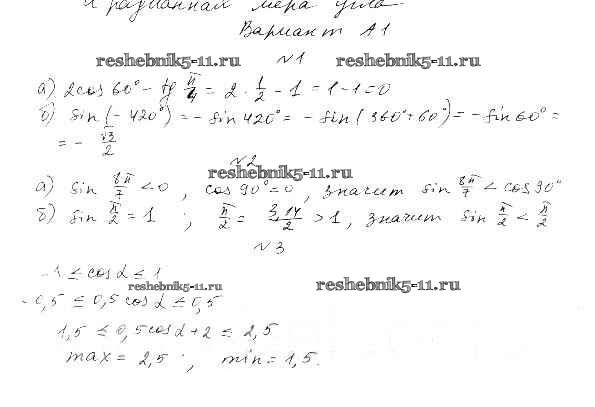 и радианная мера угла
Вариант А1
№1
reshebnik5-11.ru reshebnik5-11.ru
а) 2cos 60° - tg π/4 = 2 · 1/2 - 1 = 1 - 1 = 0
б) sin (- 420°) = - sin 420° = - sin (360° + 60°) = - sin 60° =
= - √3/2
№2
reshebnik5-11.ru
а) sin 8π/7 < 0 , cos 90° = 0 , значит sin 8π/7 < cos 90°
б) sin π/2 = 1 ; π/2 = 3,14/2 > 1 , значит sin π/2 < π/2
№3
- 1 ≤ cos α ≤ 1
reshebnik5-11.ru reshebnik5-11.ru
- 0,5 ≤ 0,5 cos α ≤ 0,5
1,5 ≤ 0,5cos α + 2 ≤ 2,5
max = 2,5 ; min = 1,5.